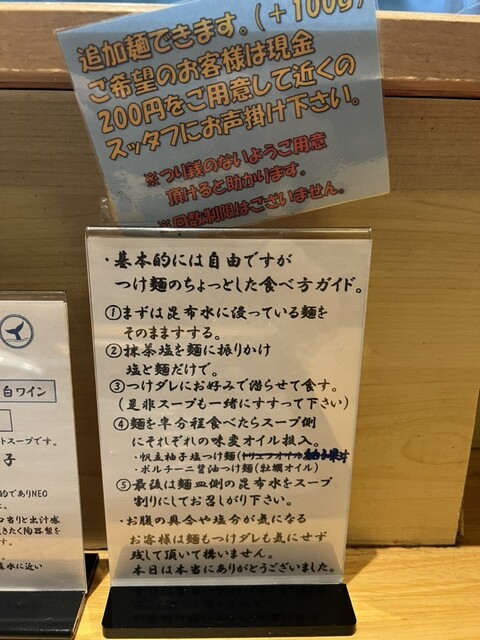 追加麺できます。(+100g)
ご希望のお客様は現金
200円をご用意して近くの
スッタフにお声掛け下さい。
※つり銭のないようご用意
頂けると助かります。
※回数制限はございません。
・基本的には自由ですが
つけ麺のちょっとした食べ方ガイド。
①まずは昆布水に浸っている麺を
そのまますする。
②抹茶塩を麺に振りかけ
塩と麺だけで。
③つけダレにお好みで潜らせて食す。
(是非スープも一緒にすすって下さい)
④麺を半分程食べたらスープ側
にそれぞれの味変オイル投入。
・帆立柚子塩つけ麺(トリュフオイル
・ポルチーニ醤油つけ麺(牡蠣オイル)
⑤最後は麺皿側の昆布水をスープ
割りにしてお召しがり下さい。
・お腹の具合や塩分が気になる
お客様は麺もつけダレも気にせず
残して頂いて構いません。
本日は本当にありがとうございました。
白ワイン
トスープです。
子
的でありNEO
コ当りと出汁感
きたく陶器製を
水に近い